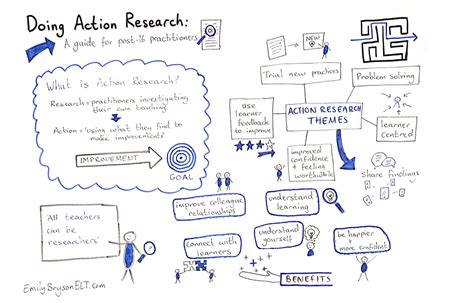 Doing Action Research:
A guide for post-16 practitioners
What is Action Research?
Research = practitioners investigating
their own teaching'
Action = 'using what they find to
make improvements'
IMPROVEMENT
GOAL
NEW
Trial new practices
Problem solving
ACTION RESEARCH
THEMES
use
learner
feedback
to improve
learner
centred
improved
confidence
+ feeling
worthwhile
Share findings
'All
teachers
can be
researchers'
improve colleague
relationships
understand
learning
connect with
learners
understand
yourself
be happier
more confident
BENEFITS
EmilyBrysonELT.com